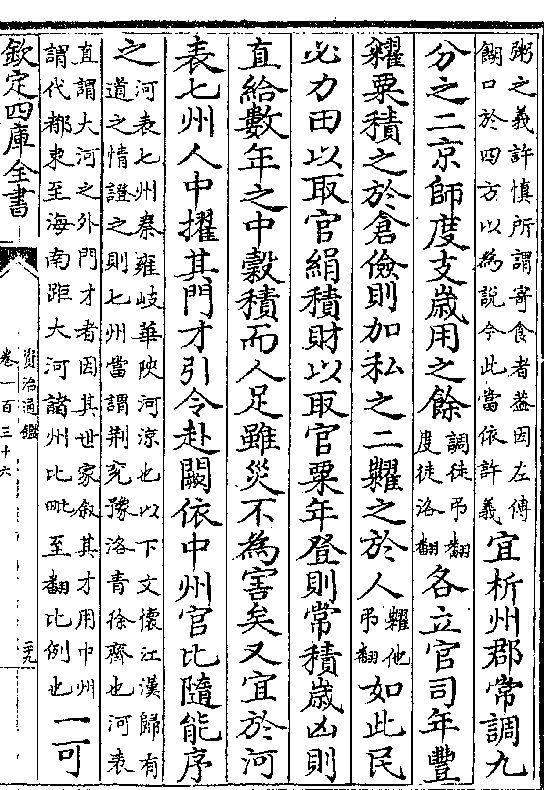 粥之義許慎所謂寄食者蓋因左傳
餬口於四方以為説今此當依許義
宜析州郡常調九
分之二京師度支歳用之餘
調徒弔翻
度徒洛翻
各立官司年豐
糴粟積之於倉儉則加私之二糶之於人
糶他
弔翻
如此民
必力田以取官絹積財以取官粟年登則常積歳凶則
直給數年之中穀積而人足雖災不為害矣又宜於河
表七州人中擢其門才引令赴闕依中州官比隨能序
之
河表七州秦雍岐華陝河涼也以下文懷江漢歸有
道之情證之則七州當謂荆兖豫洛青徐齊也河表
直謂大河之外門才者因其世家叙其才用中州
謂代都東至海南距大河諸州比毗至翻比例也
一可
欽定四庫全書
資治通鑑
卷一百三十六